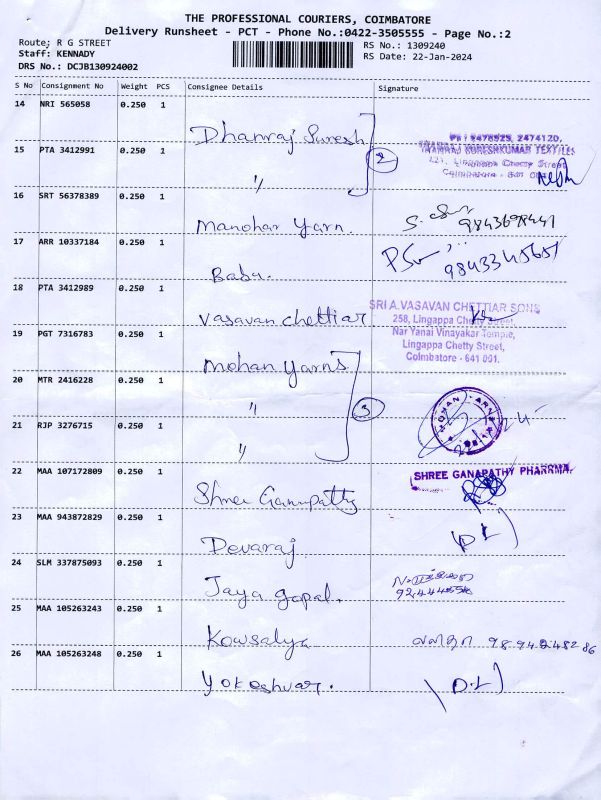 THE PROFESSIONAL COURIERS, COIMBATORE
Delivery Runsheet - PCT - Phone No.:0422-3505555 - Page No.:2
Route: R G STREET
RS No.: 1309240
Staff: KENNADY
RS Date: 22-Jan-2024
DRS No.: DCJB130924002
S No Consignment No Weight PCS Consignee Details Signature
14 NRI 565058 0.250 1
Dhanraj Suresh
15 PTA 3412991 0.250 1
2
"
16 SRT 56378389 0.250 1
Manohar Yarn.
17 ARR 10337184 0.250 1
Babu.
18 PTA 3412989 0.250 1
Vasavan chettiar
SRI A.VASAVAN CHETTIAR SONS
258, Lingappa Chetty Street,
Nar Yanai Vinayakar Temple,
Lingappa Chetty Street,
Coimbatore - 641 001.
19 PGT 7316783 0.250 1
Mohan Yarns
20 MTR 2416228 0.250 1
"
3
21 RJP 3276715 0.250 1
"
22 MAA 107172809 0.250 1
Shree Ganapathy
SHREE GANAPATHY PHARRMA.
23 MAA 943872829 0.250 1
Devaraj
24 SLM 337875093 0.250 1
Jaya gopal.
25 MAA 105263243 0.250 1
Kowsalya
26 MAA 105263248 0.250 1
Yokeshvar.
(D.L)